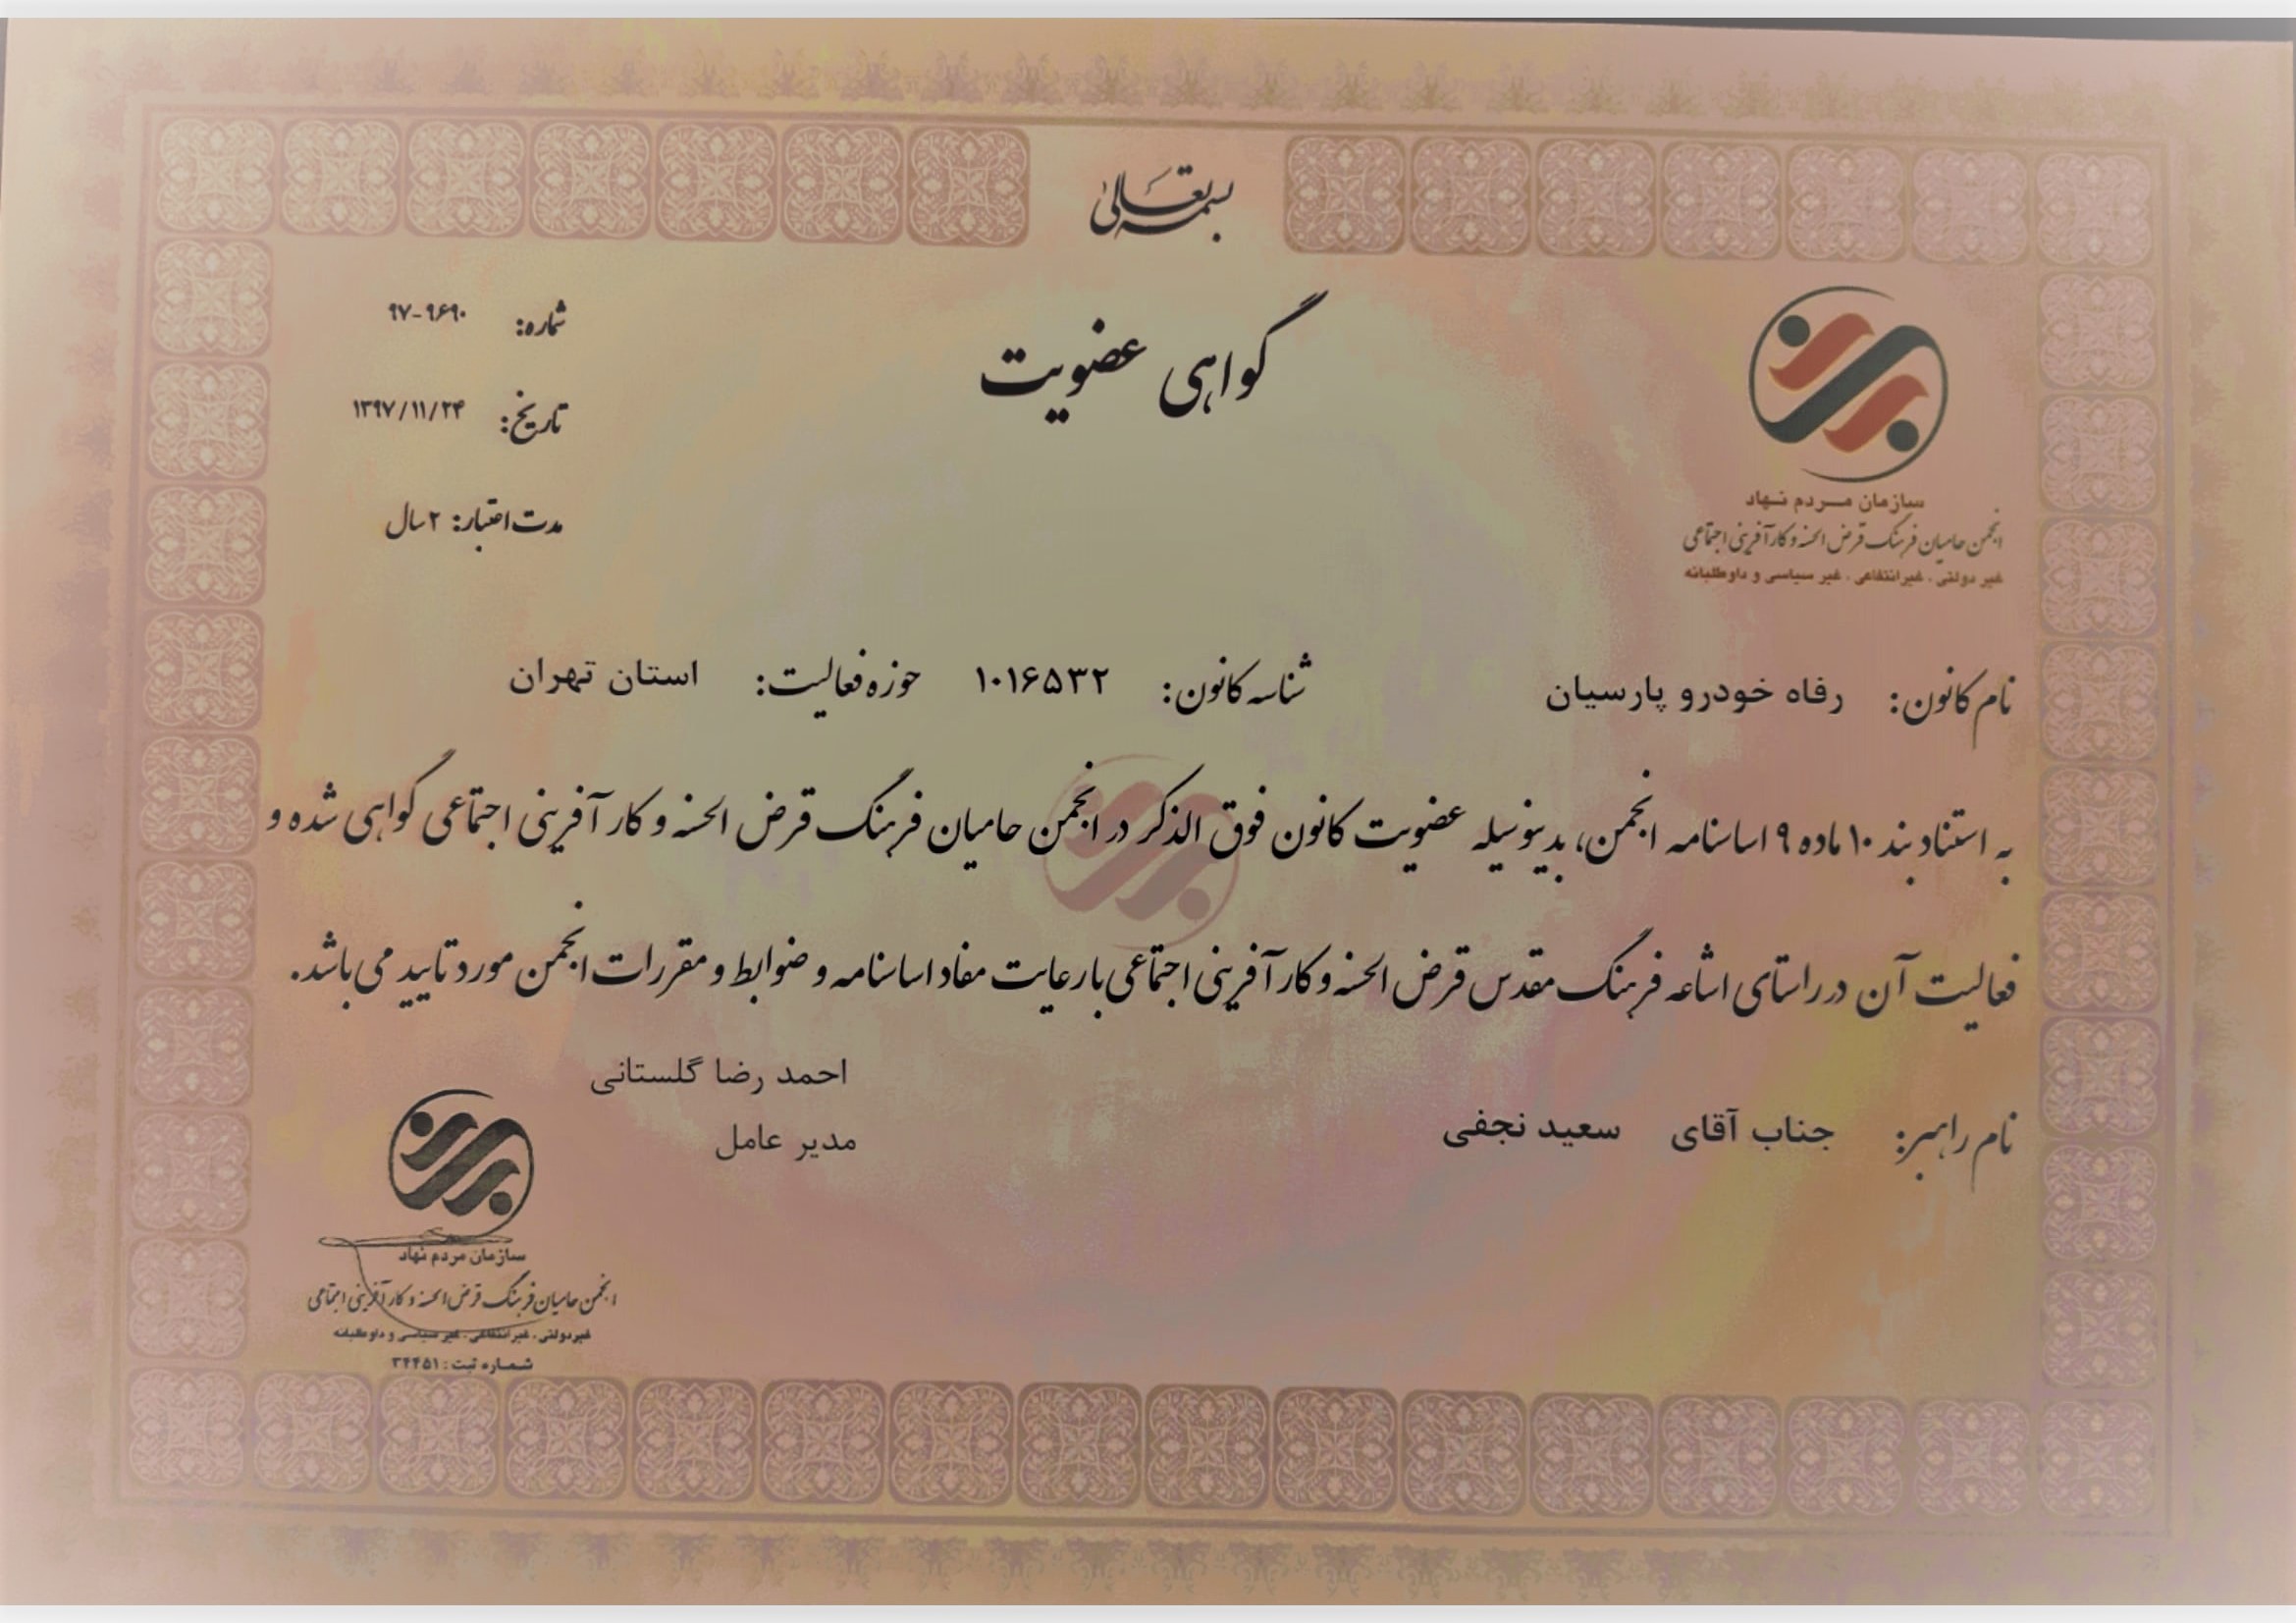 بسمه تعالی
گواهی عضویت
شماره: ۹۷-۹۶۹۰
تاریخ: ۱۳۹۷/۱۱/۲۴
مدت اعتبار: ۲ سال
سازمان مردم نهاد
انجمن حامیان فرهنگ قرض الحسنه و کارآفرینی اجتماعی
غیر دولتی . غیرانتفاعی . غیر سیاسی و داوطلبانه
نام کانون: رفاه خودرو پارسیان شناسه کانون: ۱۰۱۶۵۳۲ حوزه فعالیت: استان تهران
به استناد بند ۱۰ ماده ۹ اساسنامه انجمن، بدینوسیله عضویت کانون فوق الذکر در انجمن حامیان فرهنگ قرض الحسنه و کارآفرینی اجتماعی گواهی شده و
فعالیت آن در راستای اشاعه فرهنگ مقدس قرض الحسنه و کارآفرینی اجتماعی با رعایت مفاد اساسنامه و ضوابط و مقررات انجمن مورد تایید می باشد.
نام راهبر: جناب آقای سعید نجفی
احمد رضا گلستانی
مدیر عامل
سازمان مردم نهاد
انجمن حامیان فرهنگ قرض الحسنه و کارآفرینی اجتماعی
غیردولتی . غیرانتفاعی . غیر سیاسی و داوطلبانه
شماره ثبت : ۳۴۴۵۱